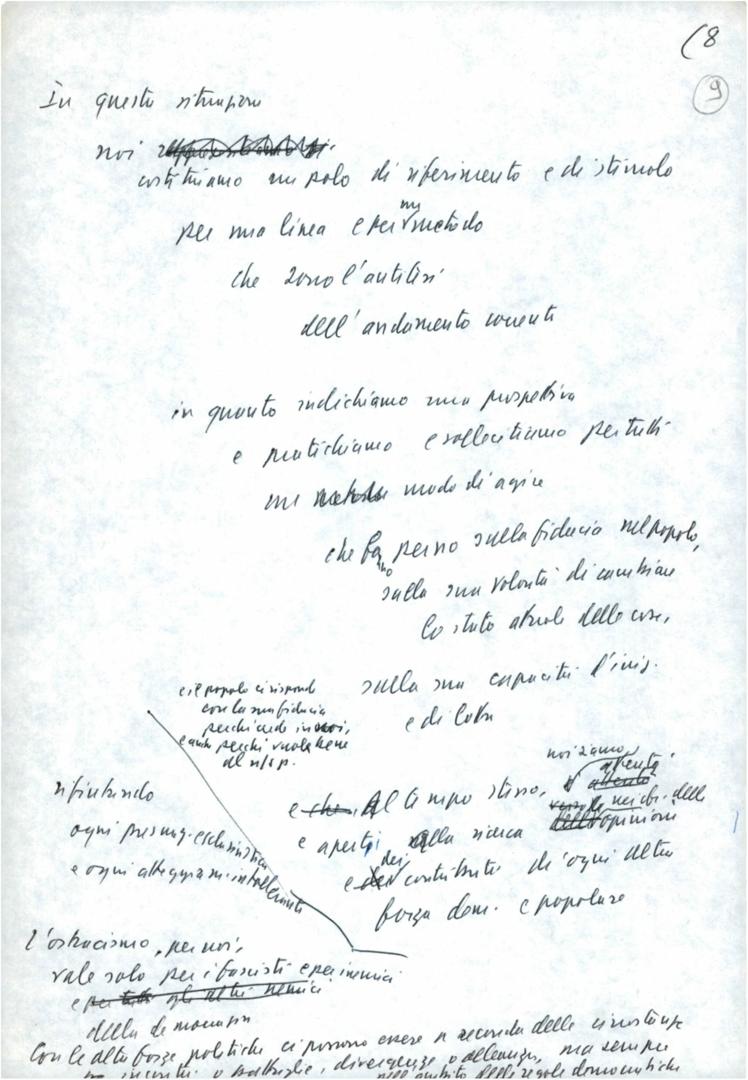 (8
9
In questa situazione
noi
costituiamo un polo di riferimento e di stimolo
per una linea e per un metodo
che sono l'antitesi
dell'andamento corrente
in quanto indichiamo una prospettiva
e pratichiamo e sollecitiamo per tutti
un metodo modo di agire
che fanno perno sulla fiducia nel popolo,
sulla sua volontà di cambiare
lo stato attuale delle cose,
sulla sua capacità d'iniz.
e di lotta
e il popolo ci risponde
con la sua fiducia
perché crede in noi,
e anche perché vuole bene
al n/s p.
rifiutando
ogni presunz. esclusivistica
e ogni atteggiam. intollerante
e che, Al tempo stesso, noi siamo attenti
attento
nei cfr. delle
opinioni
e aperti alla ricerca
e dei contributi di ogni altra
forza dem. e popolare
l'ostracismo, per noi,
vale solo per i fascisti e per i nemici
e per tutti gli altri nemici
della democrazia
Con le altre forze politiche ci possono essere a seconda delle circostanze
incontri o battaglie, divergenze o alleanze, ma sempre
nell'ambito delle regole democratiche